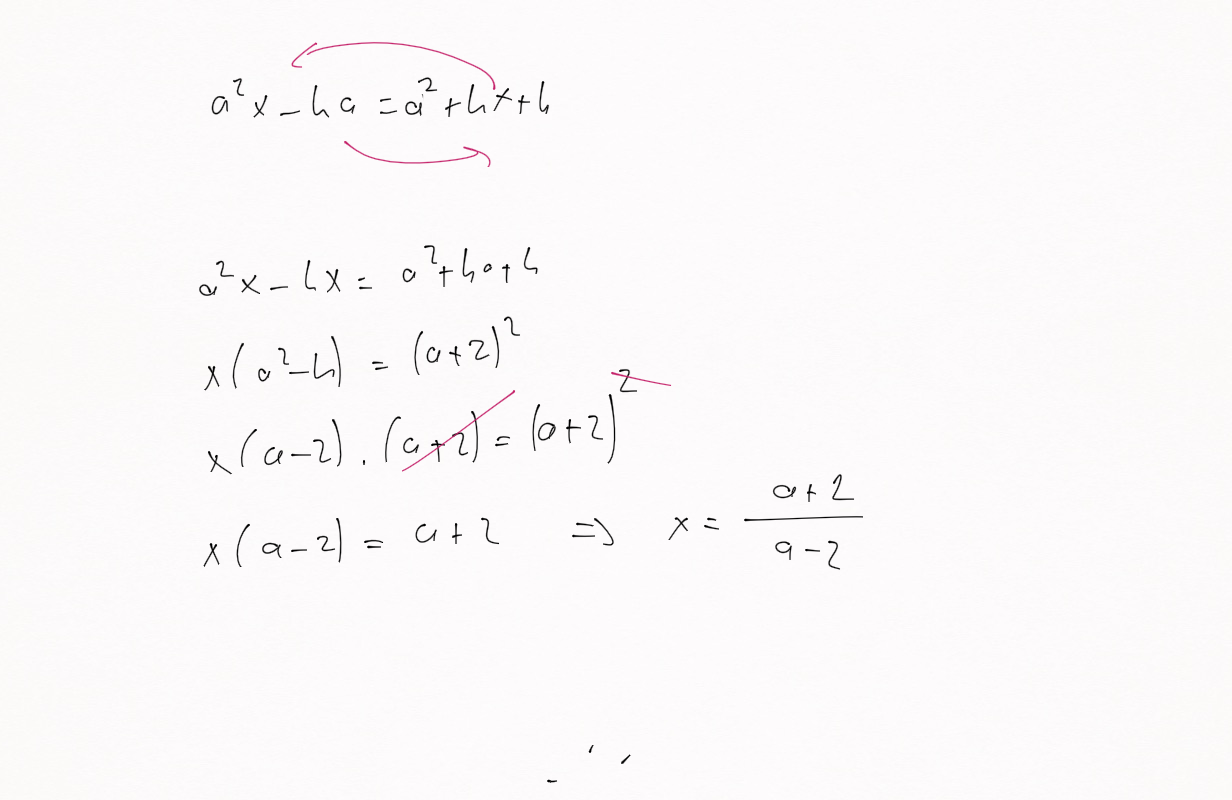 a²x - 4a = a² + 4x + 4
a²x - 4x = a² + 4a + 4
x(a² - 4) = (a + 2)²
x(a - 2) . (a + 2) = (a + 2)²
x(a - 2) = a + 2 ⇒ x = (a + 2)/(a - 2)